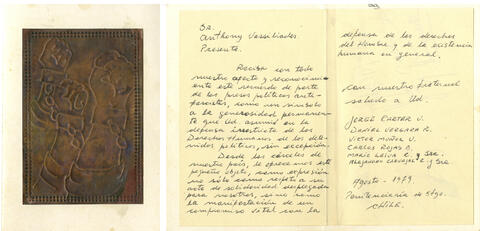 SR.
Anthony Vassiliades
Presente.
Reciba con todo
nuestro afecto y reconocimien
este recuerdo de parte
de los presos políticos
como un símbolo
a la generosidad permanen
te que Ud. asumió en la
defensa irrestricta de los
Derechos Humanos de los de-
tenidos políticos, sin excepción.
Desde las cárceles de
nuestro país, le ofrecemos este
pequeño objeto, como expresión
no sólo como respeto a su
acto de solidaridad desplegado
para nosotros, sino como
la manifestación de un
compromiso vital con la
defensa de los derechos
del Hombre y de la existencia
humana en general.
Con nuestro fraternal
saludo a Ud.
JORGE
DANIEL VERGARA R.
VICTOR MUÑOZ U.
CARLOS ROJAS
MARIO y Sra.
ALEJANDRO y Sra
Agosto - 1989
Penitenciaría de Stgo.
CHILE.